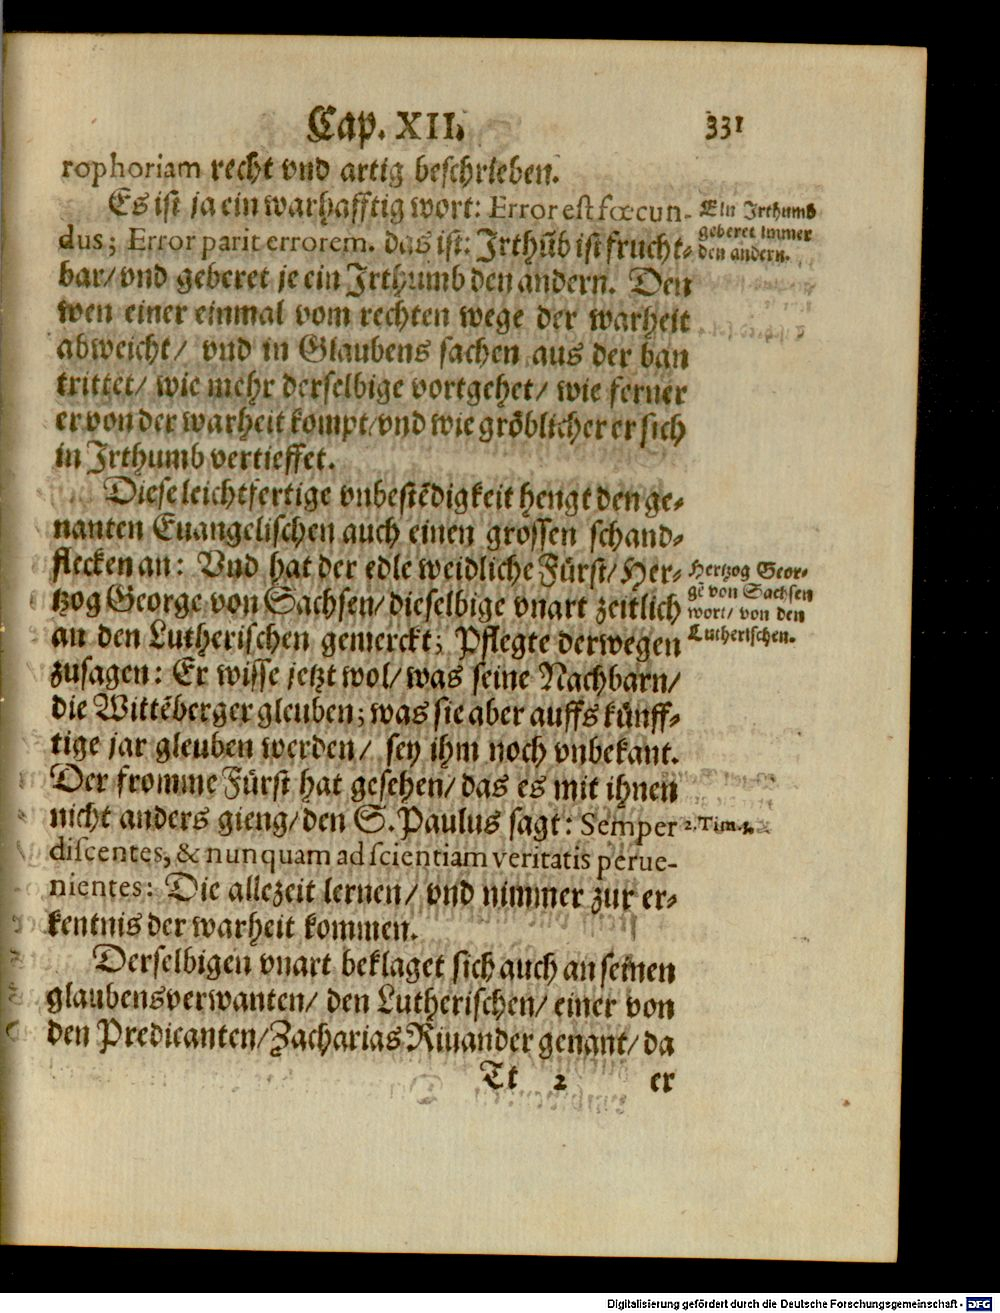 Cap. XII. 331
rophoriam recht vnd artig beschrieben.
Es ist ja ein warhafftig wort: Error est fœcun-
dus; Error parit errorem. das ist: Jrthũb ist frucht-
bar/ vnd geberet je ein Jrthumb den andern. Den
wen einer einmal vom rechten wege der warheit
abweicht/ vnd in Glaubens sachen aus der ban
trittet/ wie mehr derselbige vortgehet/ wie ferner
er von der warheit kompt/ vnd wie gröblicher er sich
in Jrthumb vertieffet.
Ein Jrthumb
geberet immer
den andern.
Diese leichtfertige vnbestẽdigkeit hengt den ge-
nanten Euangelischen auch einen grossen schand-
flecken an: Vnd hat der edle weidliche Fürst/ Her-
tzog George von Sachsen/ dieselbige vnart zeitlich
an den Lutherischen gemerckt; Pflegte derwegen
zusagen: Er wisse jetzt wol/ was seine Nachbarn/
die Wittẽberger gleuben; was sie aber auffs künff-
tige jar gleuben werden/ sey ihm noch vnbekant.
Der fromme Fürst hat gesehen/ das es mit ihnen
nicht anders gieng/ den S. Paulus sagt: Semper
discentes, & nunquam ad scientiam veritatis perue-
nientes: Die allezeit lernen/ vnd nimmer zur er-
kentnis der warheit kommen.
Hertzog Geor-
gẽ von Sachsen
wort/ von den
Lutherischen.
2. Tim. 3.
Derselbigen vnart beklaget sich auch an seinen
glaubensverwanten/ den Lutherischen/ einer von
den Predicanten/ Zacharias Riuander genant/ da
Tt 2 er
Digitalisierung gefördert durch die Deutsche Forschungsgemeinschaft - DFG